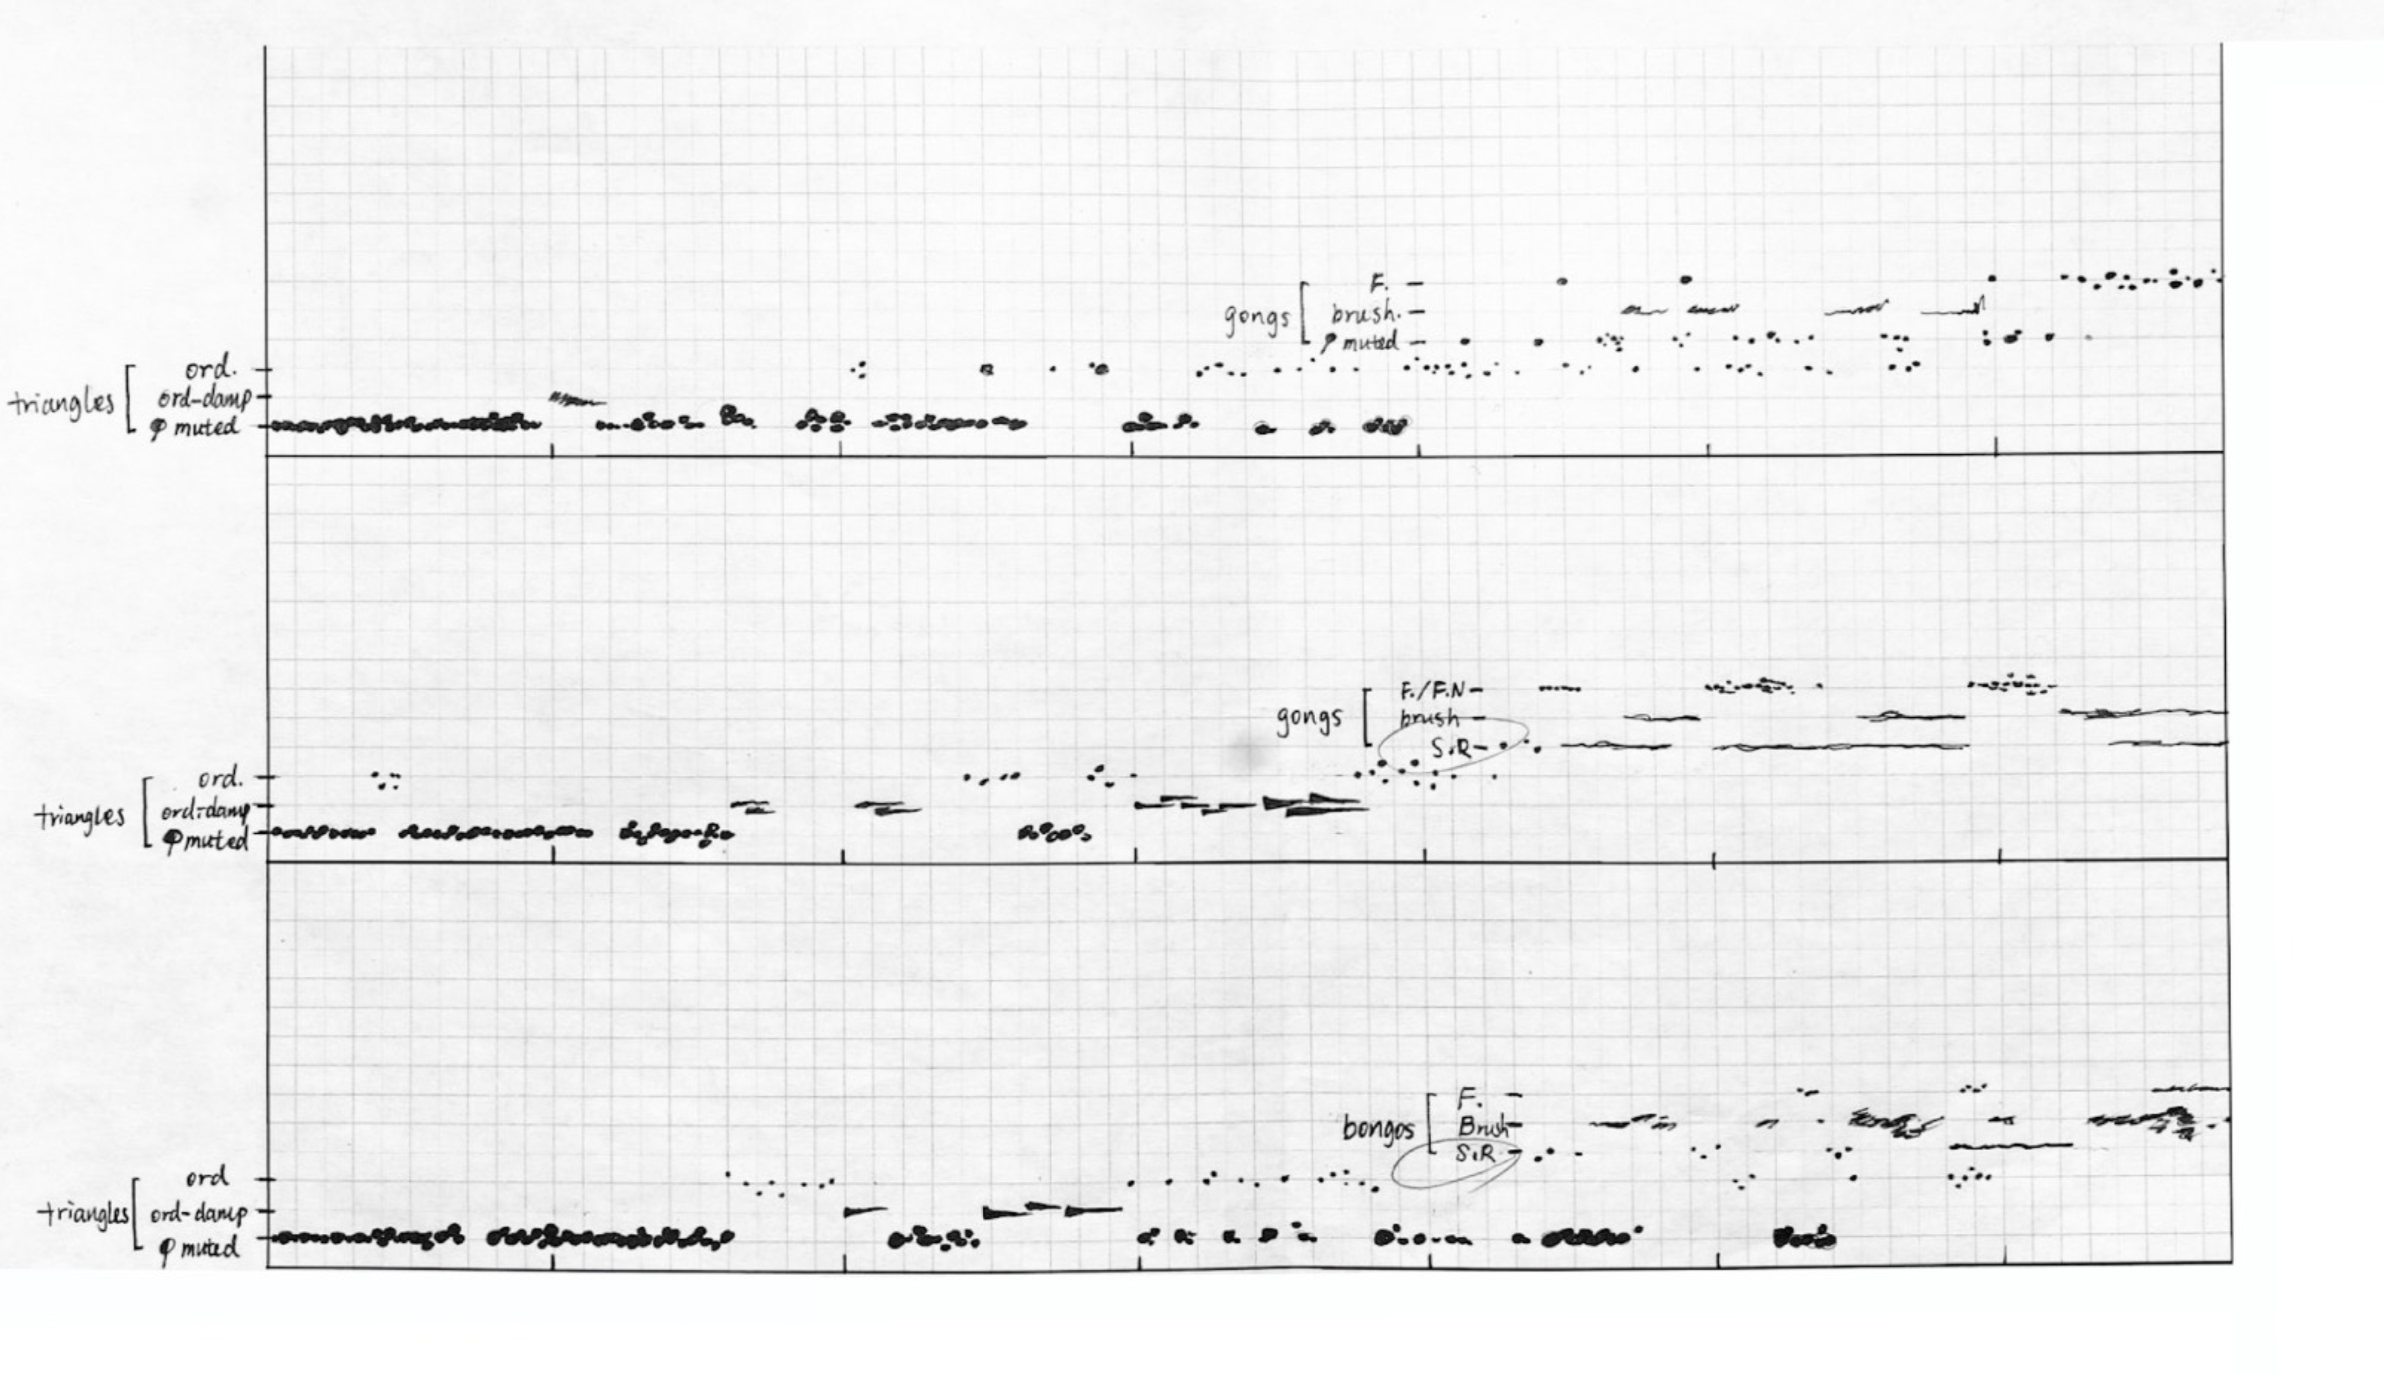 F.
gongs brush.
φ muted
ord.
triangles ord-damp
φ muted
F./F.N
gongs brush
S.R
ord.
triangles ord-damp
φ muted
F.
bongos Brush
S.R
ord
triangles ord-damp
φ muted